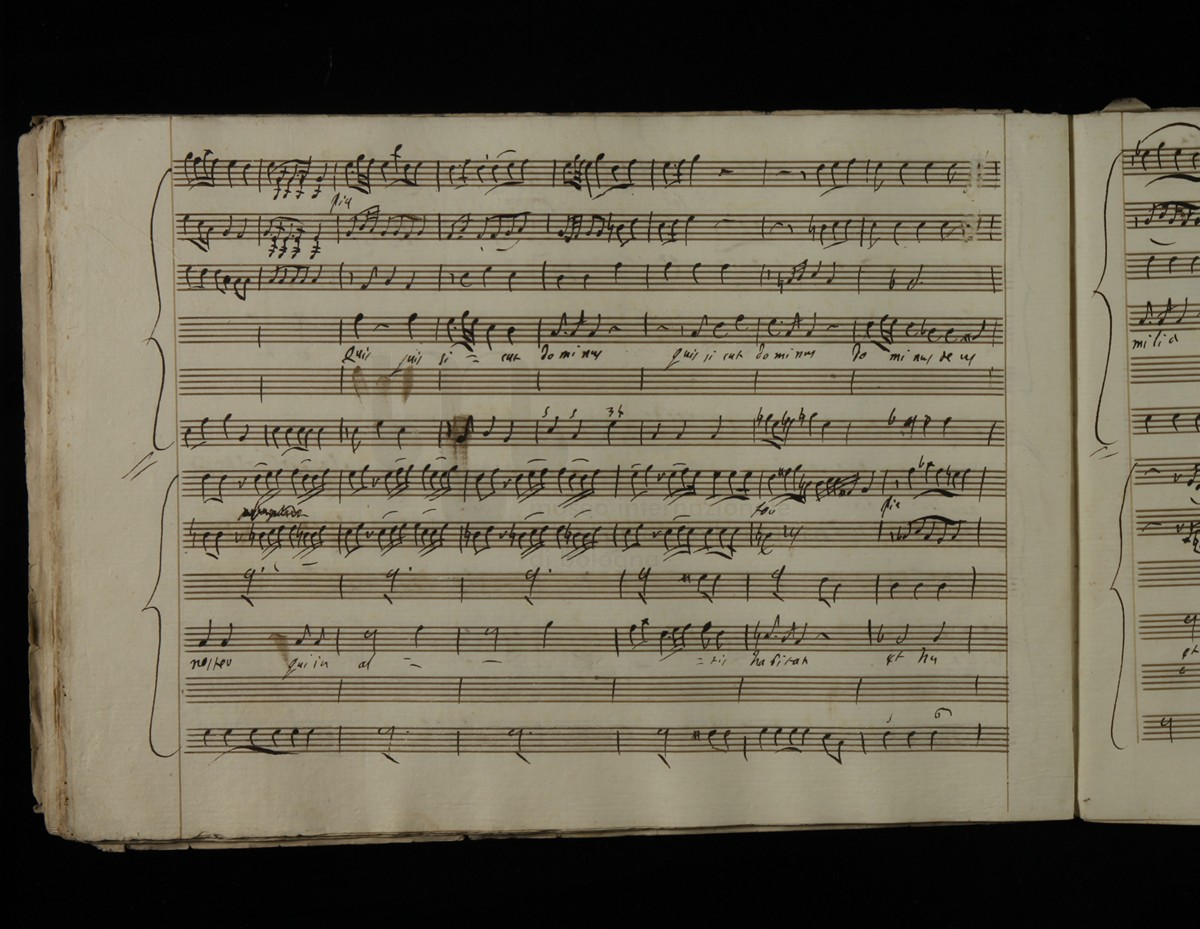 pia
Quis quis si = cut Dominus quis si cut Dominus Do minus de us
5 5 3 4
for pia
noster qui in al = - = tis habitat et hu
5 6
milia
et